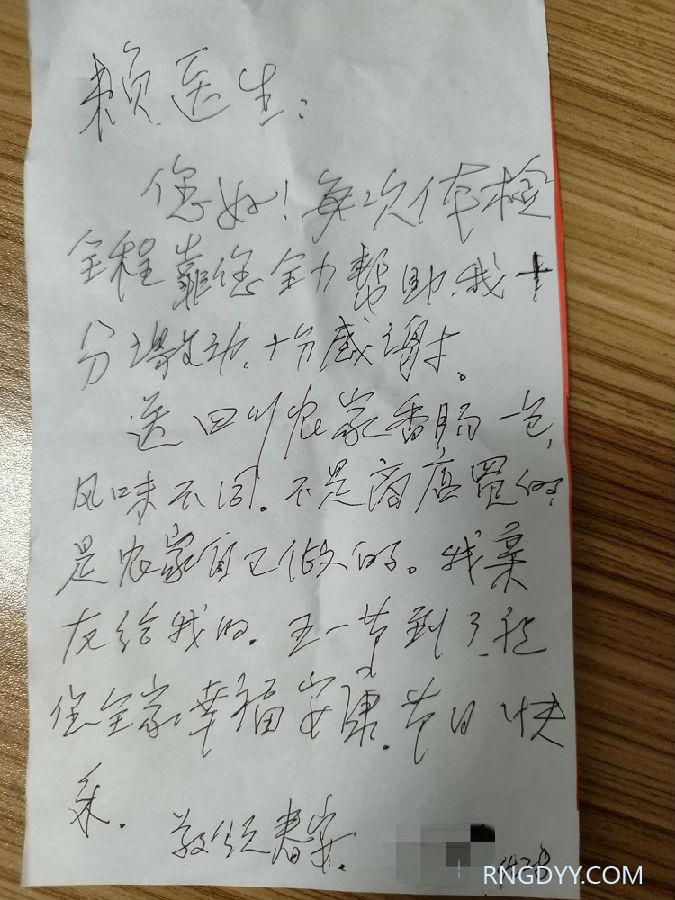 赖医生:
您好!每次体检
全程靠您全力帮助,我十
分激动,十分感谢。
送四川农家香肠一包,
风味不同。不是商店买的
是农家自己做的。我亲
友给我的。五一节到了,祝
您全家幸福安康,节日快
乐。
敬颂春安。
4.28
RNGDYY.COM